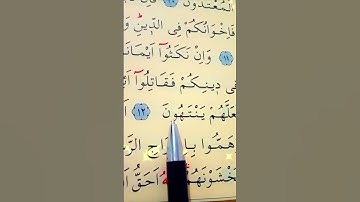 الْمُعْتَدُونَ ﴿١٠﴾ فَاِنْ
فَاِخْوَانُكُمْ فِي الدّ۪ينِۜ وَ
﴿١١﴾ وَاِنْ نَكَثُٓوا اَيْمَانَ
ف۪ي د۪ينِكُمْ فَقَاتِلُٓوا اَئِ
عَلَّهُمْ يَنْتَهُونَ ﴿١٢﴾ اَ
هَمُّوا بِاِ رَاجِ الرَّ
خْشَوْنَهُمْ اَحَقُّ اَ